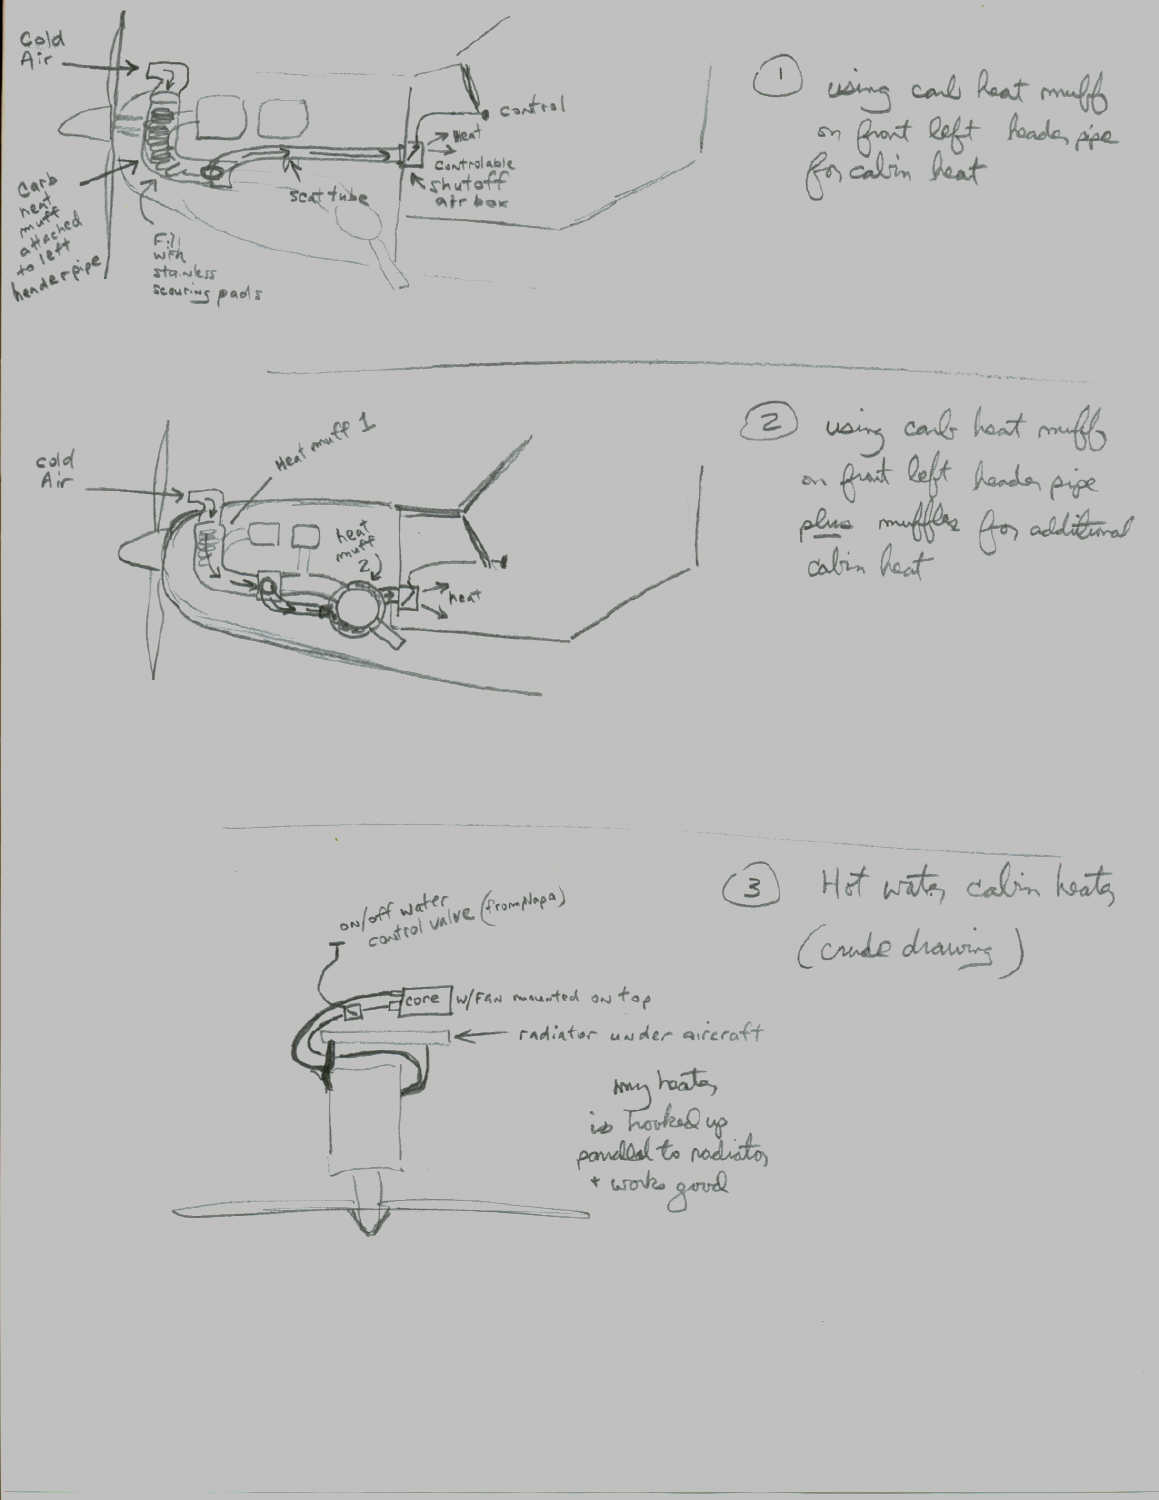 Cold
Air
control
Heat
controlable
shutoff
air box
scat tube
Carb
heat
muff
attached
to left
header pipe
Fill
with
stainless
scouring pads
1 using carb heat muff
on front left header pipe
for cabin heat
Heat muff 1
cold
Air
heat
muff
2
heat
2 using carb heat muff
on front left header pipe
plus muffler for additional
cabin heat
3 Hot water cabin heater
(crude drawing)
on/off water
control valve (from Napa)
core w/FAN mounted on top
radiator under aircraft
my heater
is hooked up
parallel to radiator
+ works good